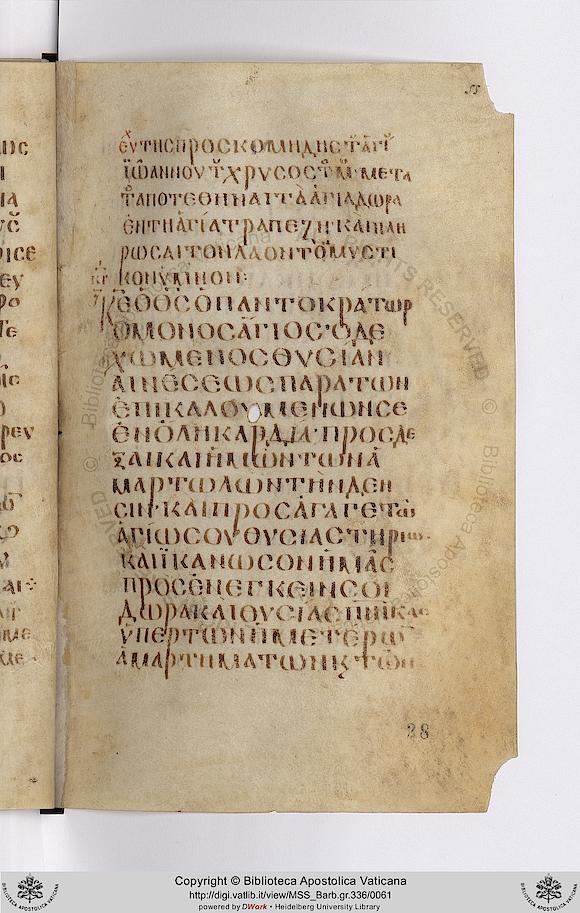 ΕΥ ΤΗΣ ΠΡΟΣΚΟΜΙΔΗΣ Τ ΑΓΙ
ΙΩΑΝΝΟΥ Τ ΧΡΥΣΟΣΤΜ· ΜΕΤΑ
Τ ΑΠΟΤΕΘΗΝΑΙ ΤΑ ΑΓΙΑ ΔΩΡΑ
ΕΝ ΤΗ ΑΓΙΑ ΤΡΑΠΕΖΗ ΚΑΙ ΠΛΗ
ΡΩΣΑΙ ΤΟΝ ΛΑΟΝ ΤΟ ΜΥΣΤΙ
ΚΟΝ ΥΜΝΟΝ:
ΚΕ Ο ΘΣ Ο ΠΑΝΤΟΚΡΑΤΩΡ
Ο ΜΟΝΟΣ ΑΓΙΟΣ· Ο ΔΕ
ΧΩΜΕΝΟΣ ΘΥΣΙΑΝ
ΑΙΝΕΣΕΩΣ ΠΑΡΑ ΤΩΝ
ΕΠΙΚΑΛΟΥΜΕΝΩΝ ΣΕ
ΕΝ ΟΛΗ ΚΑΡΔΙΑ· ΠΡΟΣΔΕ
ΞΑΙ ΚΑΙ ΗΜΩΝ ΤΩΝ Α
ΜΑΡΤΩΛΩΝ ΤΗΝ ΔΕΗ
ΣΙΝ· ΚΑΙ ΠΡΟΣΑΓΑΓΕ ΤΩ
ΑΓΙΩ ΣΟΥ ΘΥΣΙΑΣΤΗΡΙΩ·
ΚΑΙ ΙΚΑΝΩΣΟΝ ΗΜΑΣ
ΠΡΟΣΕΝΕΓΚΕΙΝ ΣΟΙ
ΔΩΡΑ ΚΑΙ ΘΥΣΙΑΣ ΠΝΙΚΑΣ
ΥΠΕΡ ΤΩΝ ΗΜΕΤΕΡΩ
ΑΜΑΡΤΗΜΑΤΩΝ Κ ΤΩΝ
38
Copyright © Biblioteca Apostolica Vaticana
http://digi.vatlib.it/view/MSS_Barb.gr.336/0061
powered by DWork • Heidelberg University Library